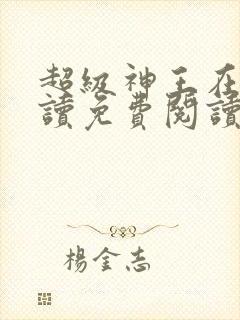 超級神王在
讀免費閱讀
楊金志